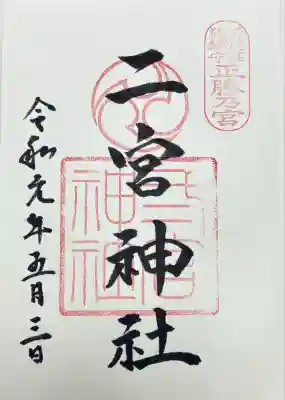 正勝乃宮
二宮神社
二宮神社
令和元年五月三日